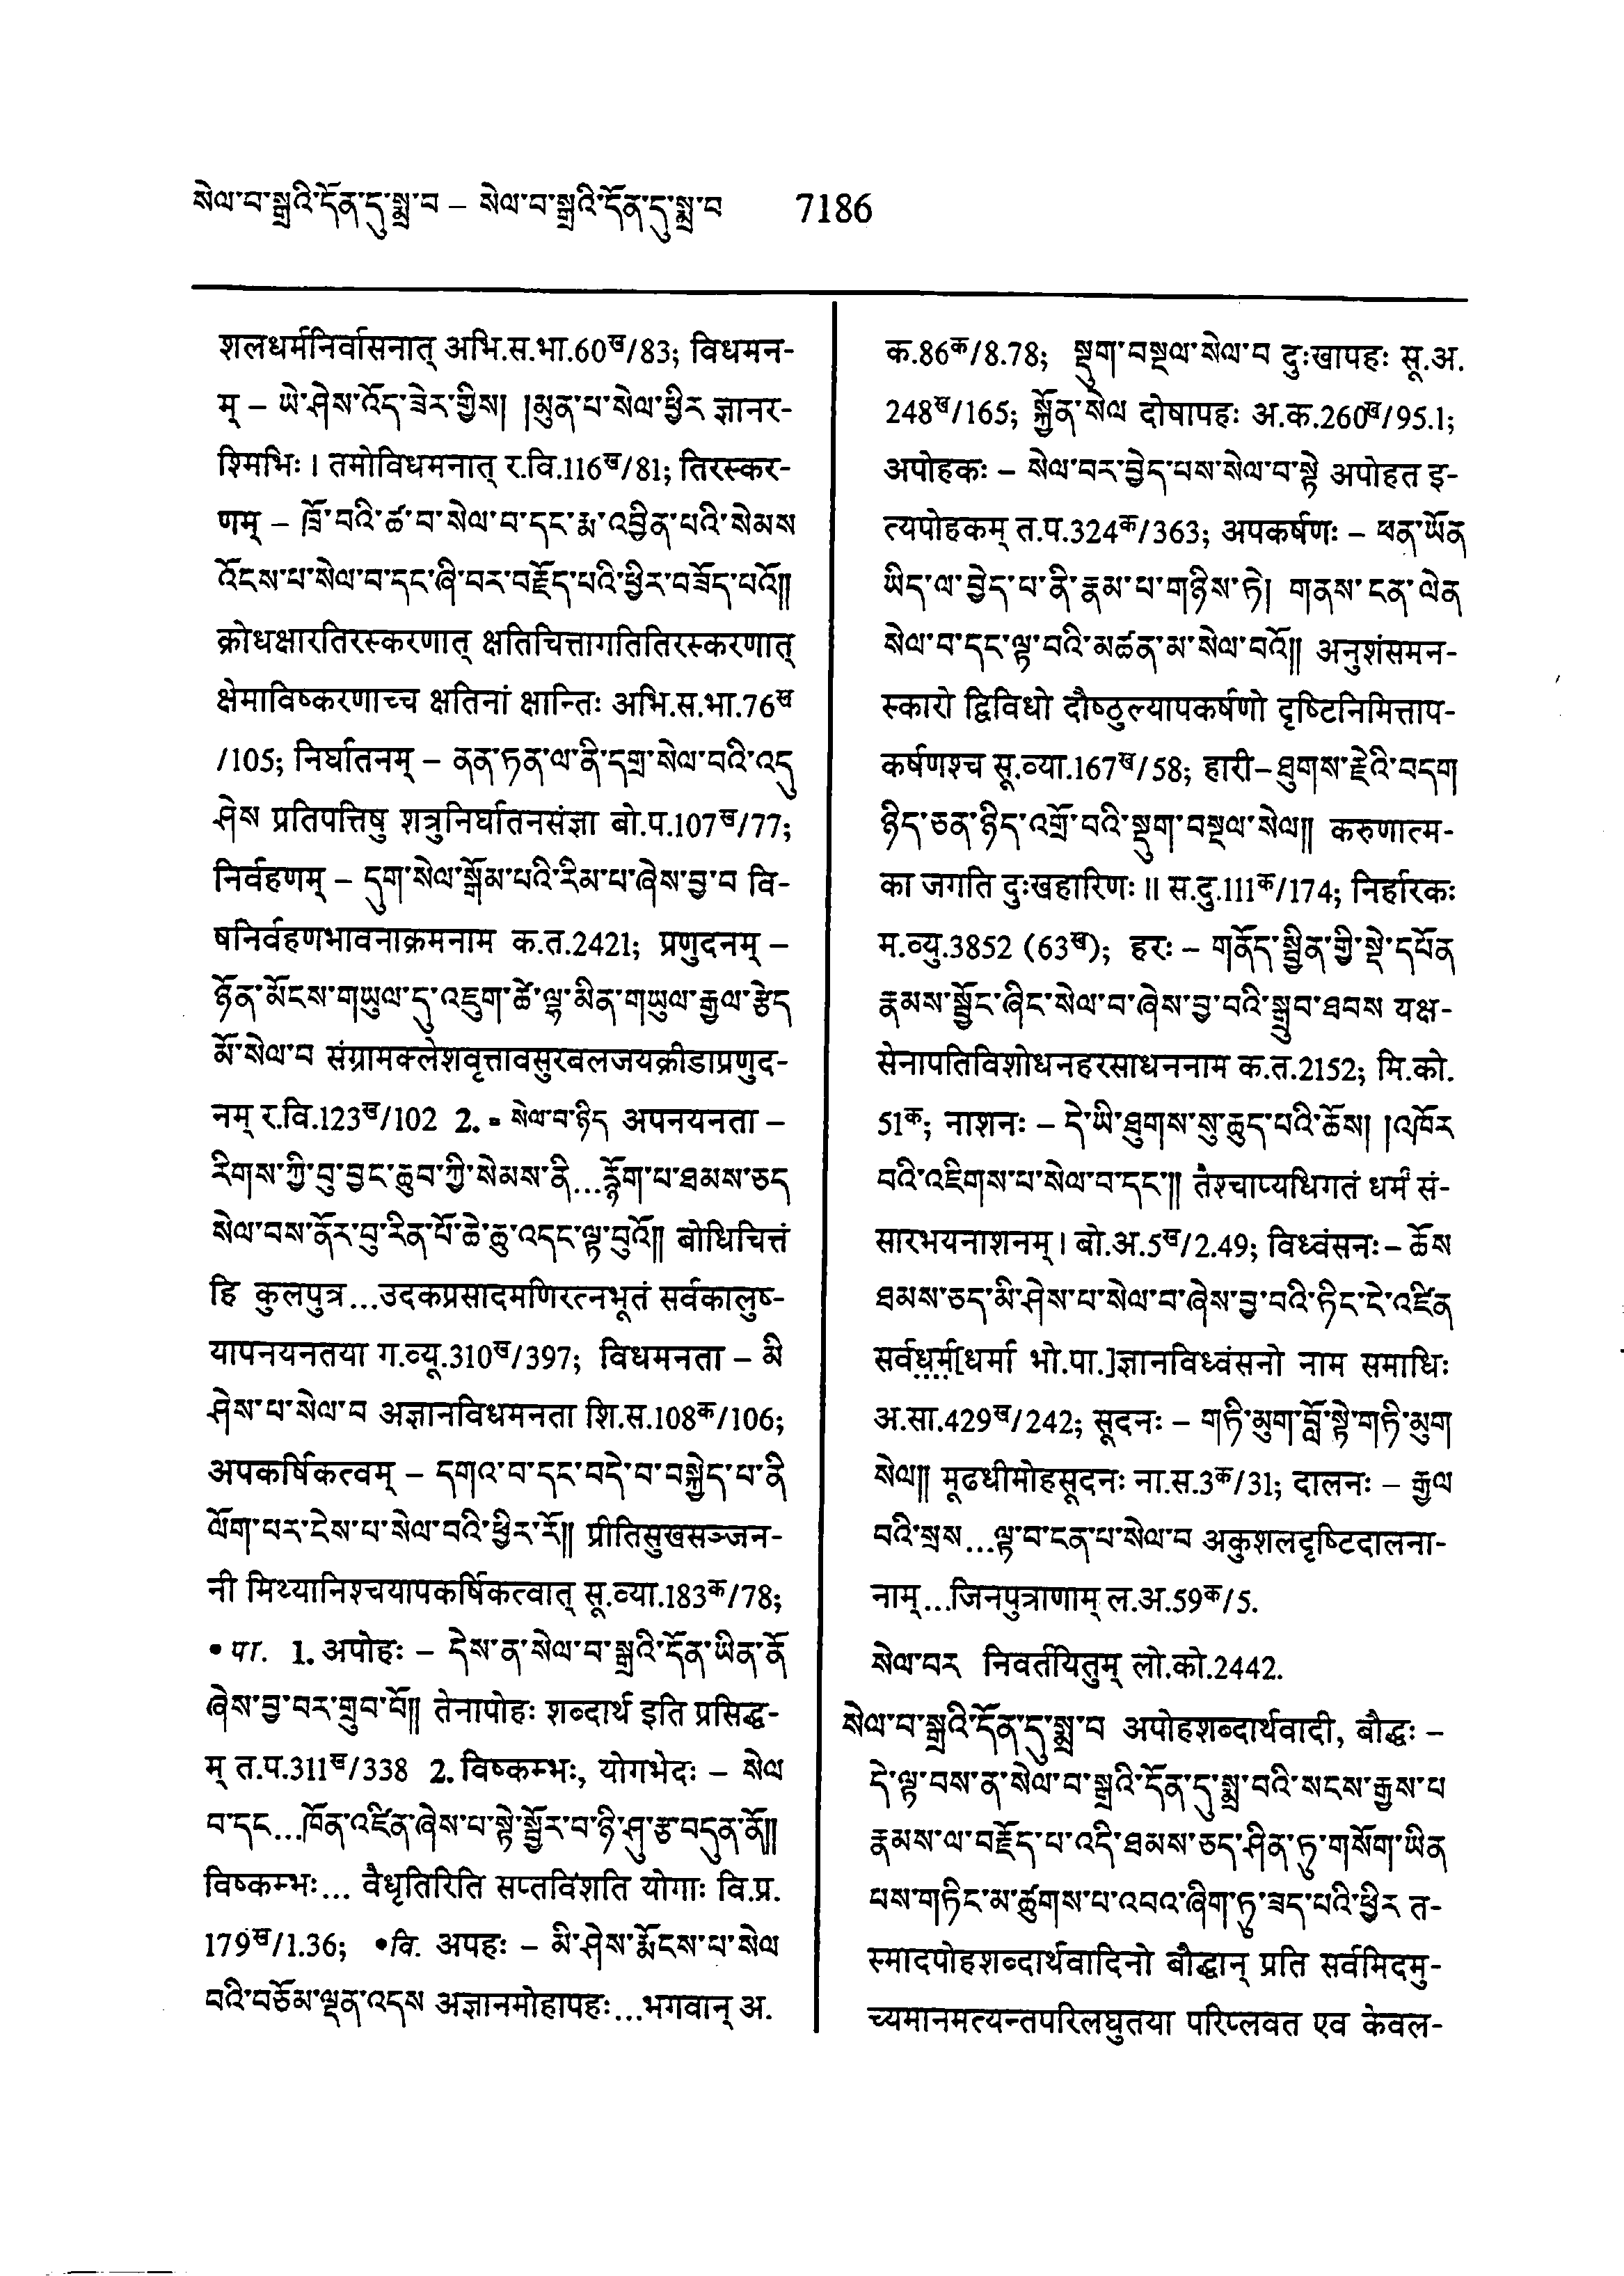 སེལ་བ་སྒྲའི་དོན་དུ་སྨྲ་བ – སེལ་བ་སྒྲའི་དོན་དུ་སྨྲ་བ 7186
शलधर्मनिर्वासनात् अभि.स.भा.60ख/83; विधमन-
म् – ཡེ་ཤེས་འོད་ཟེར་གྱིས། །མུན་པ་སེལ་ཕྱིར ज्ञानर-
श्मिभिः । तमोविधमनात् र.वि.116ख/81; तिरस्कर-
णम् – ཁྲོ་བའི་ཚ་བ་སེལ་བ་དང་རྨ་འབྱིན་པའི་སེམས
འོངས་པ་སེལ་བ་དང་ཞི་བར་བརྗོད་པའི་ཕྱིར་བཟོད་པའོ༎
क्रोधक्षारतिरस्करणात् क्षतिचित्तागतितिरस्करणात्
क्षेमाविष्करणाच्च क्षतिनां क्षान्तिः अभि.स.भा.76ख
/105; निर्घातनम् – ནན་ཏན་ལ་ནི་དགྲ་སེལ་བའི་འདུ
ཤེས प्रतिपत्तिषु शत्रुनिर्घातनसंज्ञा बो.प.107ख/77;
निर्वहणम् – དུག་སེལ་སྒོམ་པའི་རིམ་པ་ཞེས་བྱ་བ वि-
षनिर्वहणभावनाक्रमनाम क.त.2421; प्रणुदनम् –
ཉོན་མོངས་གཡུལ་དུ་འཇུག་ཚེ་ལྷ་མིན་གཡུལ་རྒྱལ་རྩེད
མོ་སེལ་བ संग्रामक्लेशवृत्तावसुरवलजयक्रीडाप्रणुद-
नम् र.वि.123ख/102 2. ▪ སེལ་བ་ཉིད अपनयनता –
རིགས་ཀྱི་བུ་བྱང་ཆུབ་ཀྱི་སེམས་ནི...རྙོག་པ་ཐམས་ཅད
སེལ་བས་ནོར་བུ་རིན་པོ་ཆེ་ཆུ་འདང་ལྟ་བུའོ༎ बोधिचित्तं
हि कुलपुत्र...उदकप्रसादमणिरत्नभूतं सर्वकालुष-
यापनयनतया ग.व्यू.310ख/397; विधमनता – མི
ཤེས་པ་སེལ་བ अज्ञानविधमनता शि.स.108क/106;
अपकर्षिकत्वम् – དགའ་བ་དང་བདེ་བ་བསྐྱེད་པ་ནི
ལོག་པར་ངེས་པ་སེལ་བའི་ཕྱིར་རོ༎ प्रीतिसुखसञ्जन-
नी मिथ्यानिश्चयापकर्षिकत्वात् सू.व्या.183क/78;
• पा. 1. अपोहः – དེས་ན་སེལ་བ་སྒྲའི་དོན་ཡིན་ནོ
ཞེས་བྱ་བར་གྲུབ་བོ༎ तेनापोहः शब्दार्थ इति प्रसिद्ध-
म् त.प.311ख/338 2. विष्कम्भः, योगभेदः – སེལ
བ་དང...ཁོན་འཛིན་ཞེས་པ་སྟེ་སྦྱོར་བ་ཉི་ཤུ་རྩ་བདུན་ནོ༎
विष्कम्भः... वैधृतिरिति सप्तविंशति योगाः वि.प्र.
179ख/1.36; •वि. अपहः – མི་ཤེས་རྨོངས་པ་སེལ
བའི་བཅོམ་ལྡན་འདས अज्ञानमोहापहः...भगवान् अ.
क.86क/8.78; སྡུག་བསྔལ་སེལ་བ दुःखापहः सू.अ.
248ख/165; སྐྱོན་སེལ दोषापहः अ.क.260ख/95.1;
अपोहकः – སེལ་བར་བྱེད་པས་སེལ་བ་སྟེ अपोहत इ-
त्यपोहकम् त.प.324क/363; अपकर्षणः – ཕན་ཡོན
ཡིད་ལ་བྱེད་པ་ནི་རྣམ་པ་གཉིས་ཏེ། གནས་ངན་ལེན
སེལ་བ་དང་ལྟ་བའི་མཚན་མ་སེལ་བའོ༎ अनुशंसमन-
स्कारो द्विविधो दौष्ठुल्यापकर्षणो दृष्टिनिमित्ताप-
कर्षणश्च सू.व्या.167ख/58; हारी–ཐུགས་རྗེའི་བདག
ཉིད་ཅན་ཉིད་འགྲོ་བའི་སྡུག་བསྔལ་སེལ༎ करुणात्म-
का जगति दुःखहारिणः ॥ स.दु.111क/174; निर्हारकः
म.व्यु.3852 (63ख); हरः – གནོད་སྦྱིན་གྱི་སྡེ་དཔོན
རྣམས་སྦྱོང་ཞིང་སེལ་བ་ཞེས་བྱ་བའི་སྒྲུབ་ཐབས यक्ष-
सेनापतिविशोधनहरसाधननाम क.त.2152; मि.को.
51क; नाशनः – དེ་ཡི་ཐུགས་སུ་ཆུད་པའི་ཆོས། །འཁོར
བའི་འཇིགས་པ་སེལ་བ་དང་༎ तैश्चाप्यधिगतं धर्मं सं-
सारभयनाशनम् । बो.अ.5ख/2.49; विध्वंसनः – ཆོས
ཐམས་ཅད་མི་ཤེས་པ་སེལ་བ་ཞེས་བྱ་བའི་ཏིང་ངེ་འཛིན
सर्वधर्म[धर्मा भो.पा.]ज्ञानविध्वंसनो नाम समाधिः
अ.सा.429ख/242; सूदनः – གཏི་མུག་བློ་སྟེ་གཏི་མུག
སེལ༎ मूढधीमोहसूदनः ना.स.3क/31; दालनः – རྒྱལ
བའི་སྲས...ལྟ་བ་ངན་པ་སེལ་བ अकुशलदृष्टिदालना-
नाम्...जिनपुत्राणाम् ल.अ.59क/5.
སེལ་བར निवर्तयितुम् लो.को.2442.
སེལ་བ་སྒྲའི་དོན་དུ་སྨྲ་བ अपोहशब्दार्थवादी, बौद्धः –
དེ་ལྟ་བས་ན་སེལ་བ་སྒྲའི་དོན་དུ་སྨྲ་བའི་སངས་རྒྱས་པ
རྣམས་ལ་བརྗོད་པ་འདི་ཐམས་ཅད་ཤིན་ཏུ་གསོག་ཡིན
པས་གཏིང་མ་ཚུགས་པ་འབའ་ཞིག་ཏུ་ཟད་པའི་ཕྱིར त-
स्मादपोहशब्दार्थवादिनो बौद्धान् प्रति सर्वमिदमु-
च्यमानमत्यन्तपरिलघुतया परिप्लवत एव केवल-